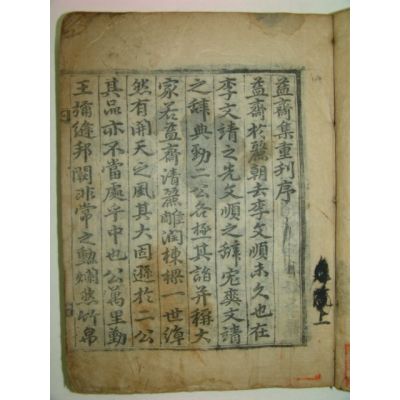 益齋集重刊序
益齋於麗朝去李文順未久也在
李文靖之先文順之辭宏奬文靖
之辭典動二公各極其詣并稱大
家若益齋清麗雕潤棟樑一世偉
然有開天之風其大固遜於二公
其品亦不當處乎中也公萬里勤
王彌縫邦闕非常之勳爛然竹帛
上